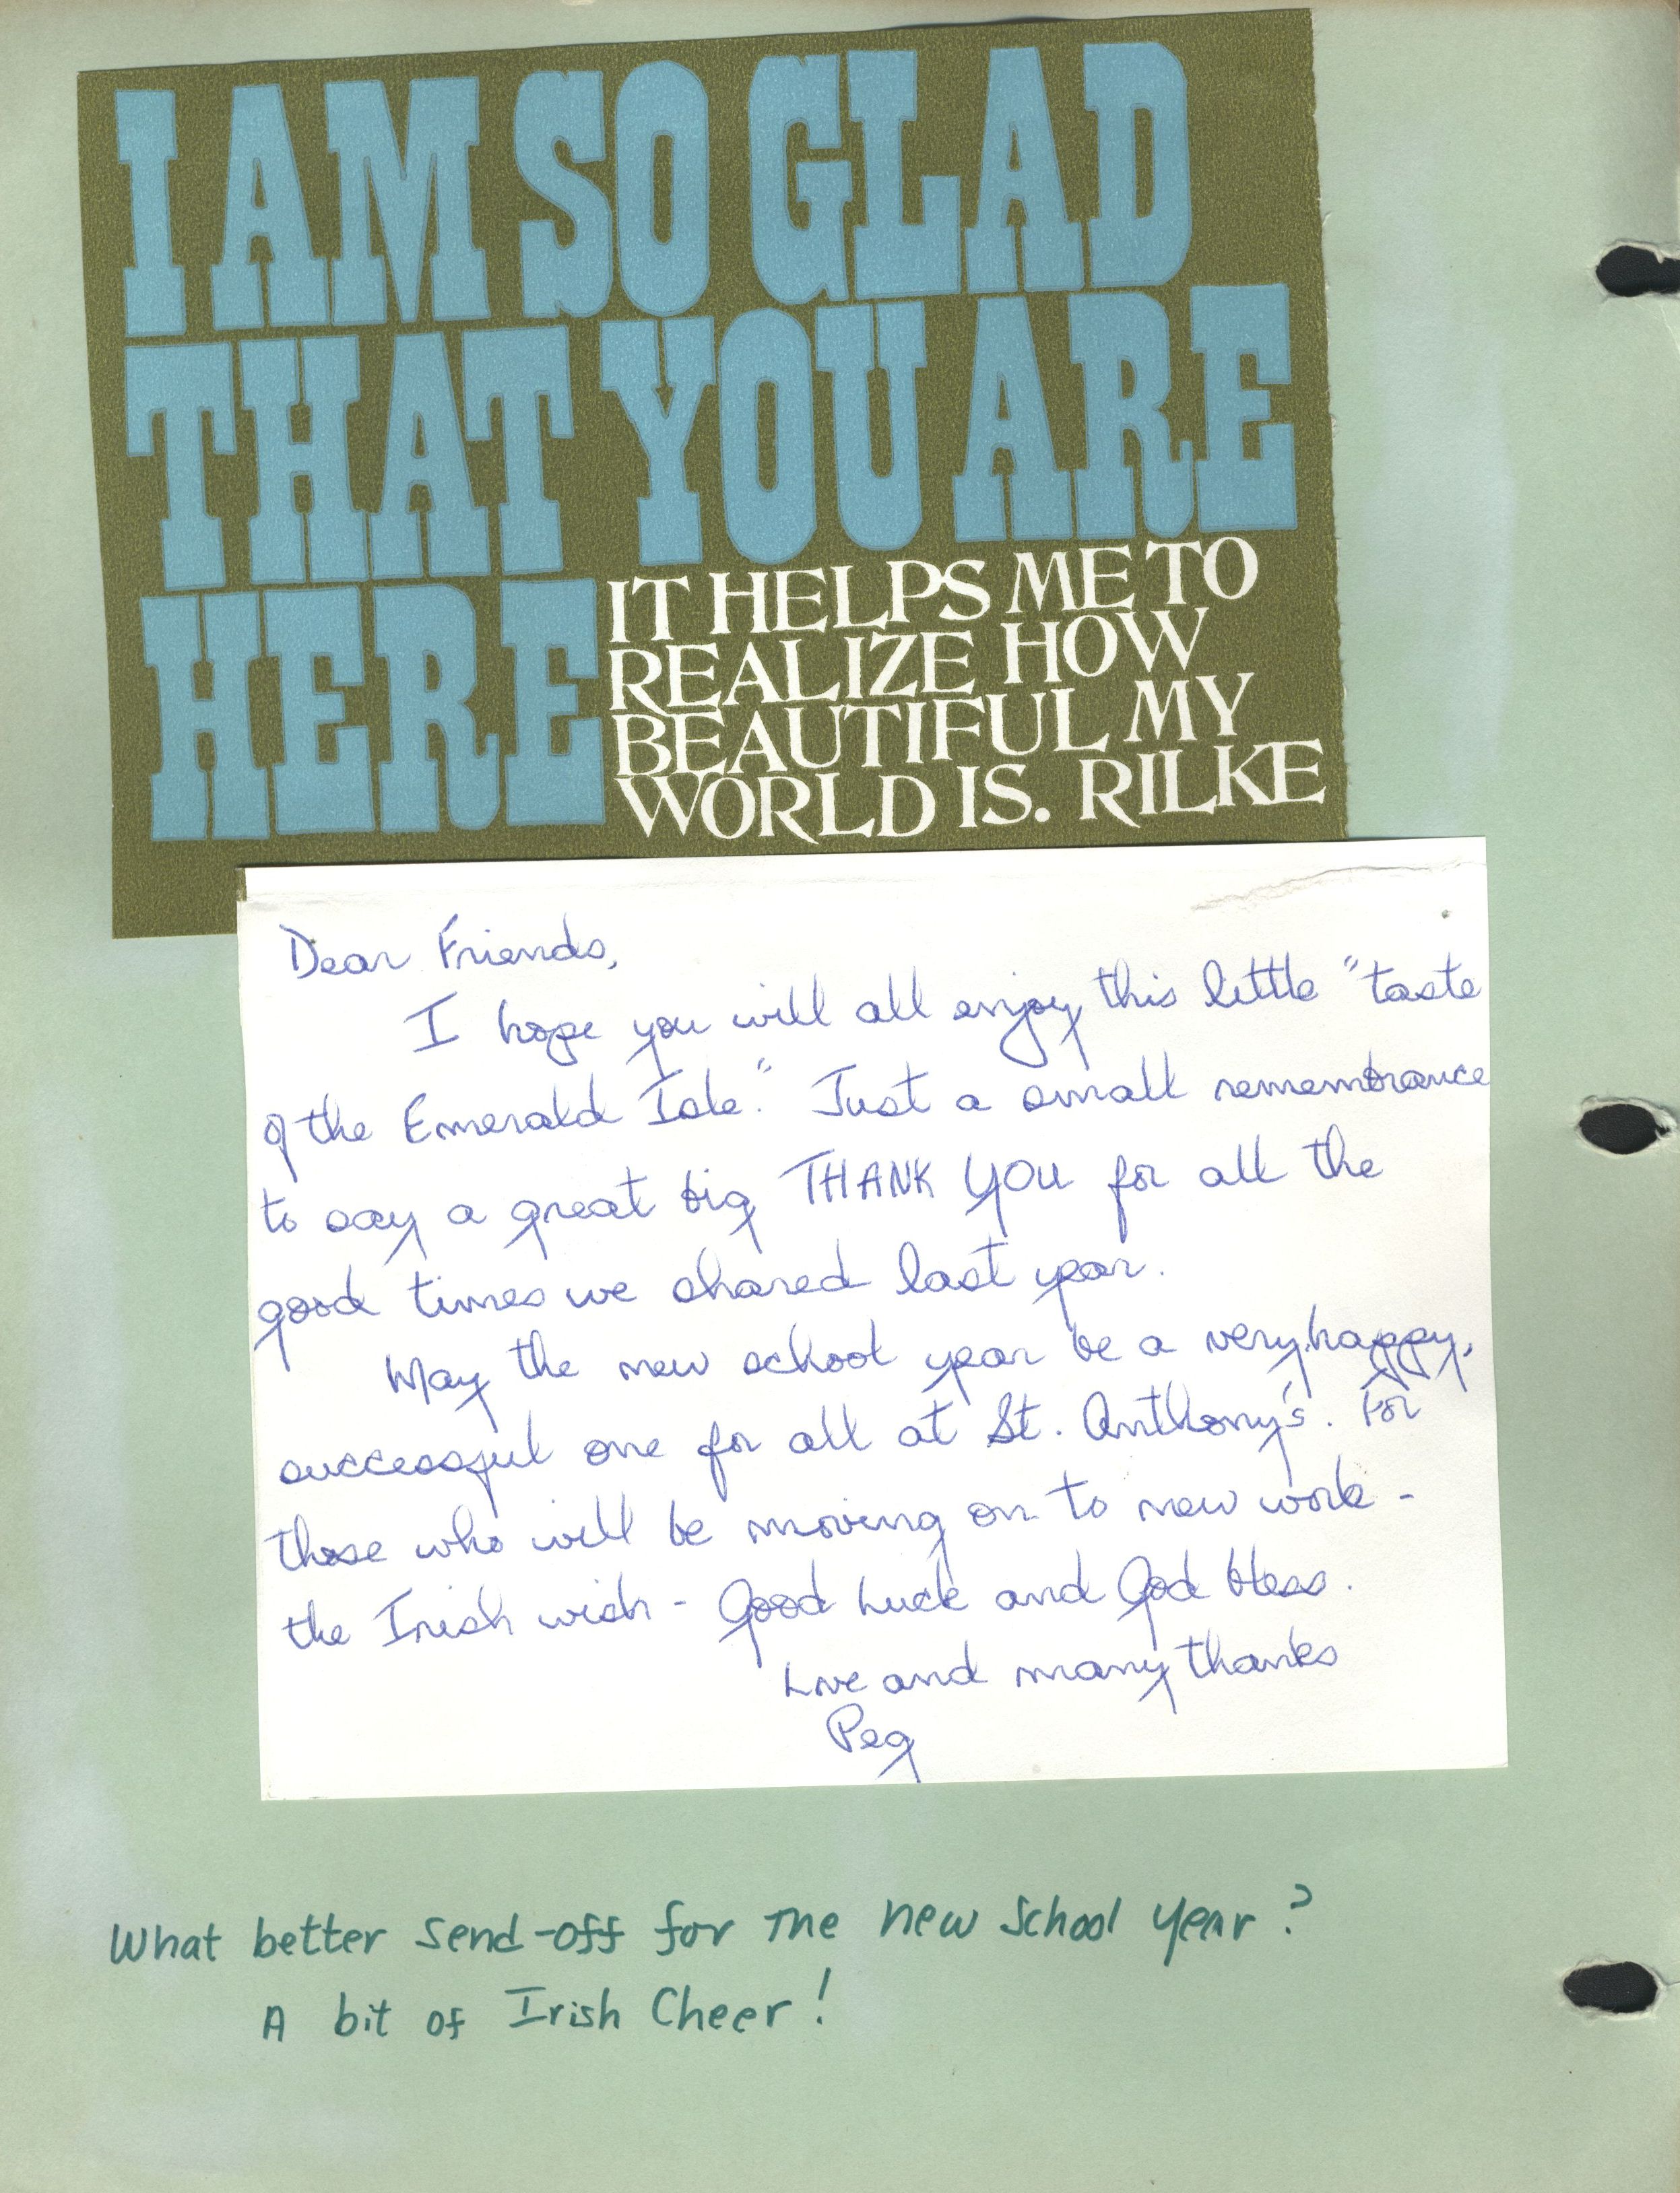 I AM SO GLAD
THAT YOU ARE
HERE
IT HELPS ME TO
REALIZE HOW
BEAUTIFUL MY
WORLD IS. RILKE
Dear Friends,
I hope you will all enjoy this little "taste
of the Emerald Isle." Just a small remembrance
to say a great big THANK YOU for all the
good times we shared last year.
May the new school year be a very happy,
successful one for all at St. Anthony's. For
those who will be moving on to new work -
the Irish wish - Good Luck and God bless.
Love and many thanks
Peg
What better send-off for the new school year?
A bit of Irish Cheer!